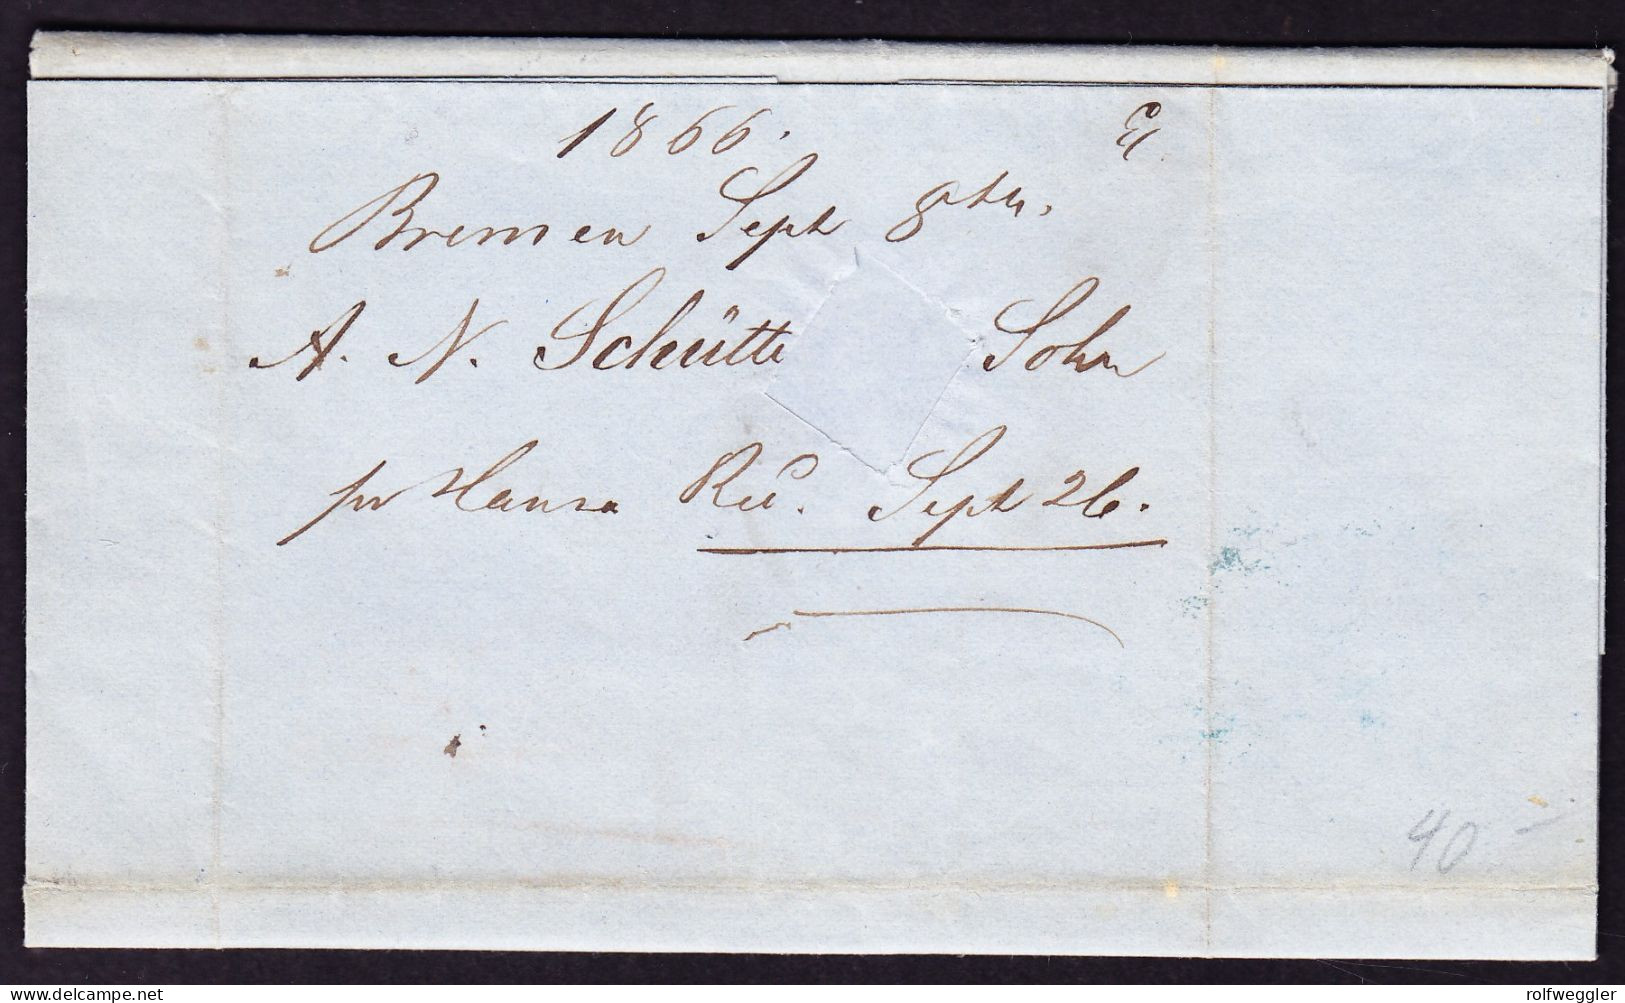 1866.
Bremen Sept 8th.
A. N. Schütte Sohn
pr Hansa Rec. Sept 26.
40 -
delcampe.net
rolfweggler